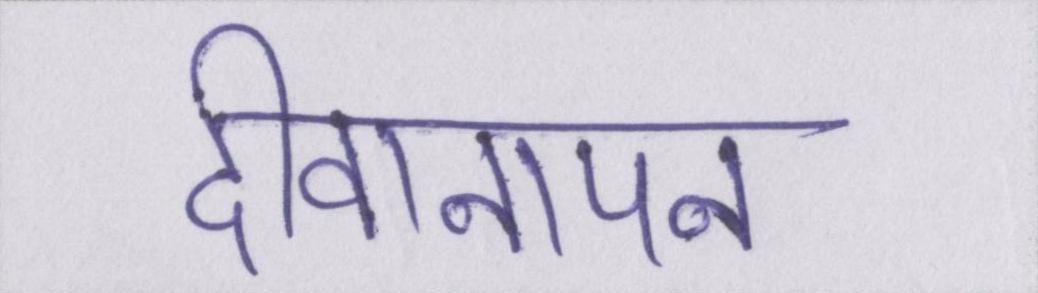 दीवानापन